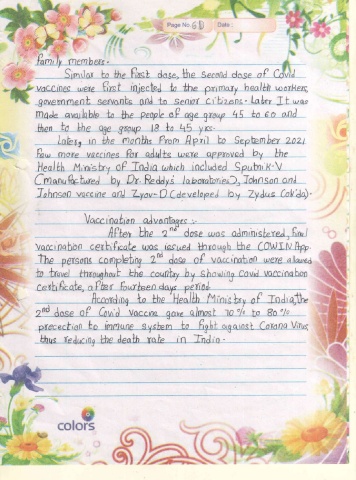 Page No. 60 Date:
family members.
Similar to the first dose, the second dose of Covid
vaccines were first injected to the primary health workers,
government servants and to senior citizens. later It was
made available to the people of age group 45 to 60 and
then to the age group 18 to 45 yrs.
Later, in the months from April to September 2021
Few more vaccines for adults were approved by the
Health Ministry of India which included Sputnik-V
(manufactured by Dr. Reddy's laboratories), Johnson and
Johnson vaccine and Zycov-D (developed by Zydus Cadila).
Vaccination advantages :-
After the 2nd dose was administered, final
vaccination certificate was issued through the COWIN App.
The persons completing 2nd dose of vaccination were allowed
to travel throughout the country by showing Covid vaccination
certificate, after fourteen days period.
According to the Health Ministry of India, the
2nd dose of Covid vaccine gave almost 70% to 80%
protection to immune system to fight against Corona Virus
thus reducing the death rate in India.
colors